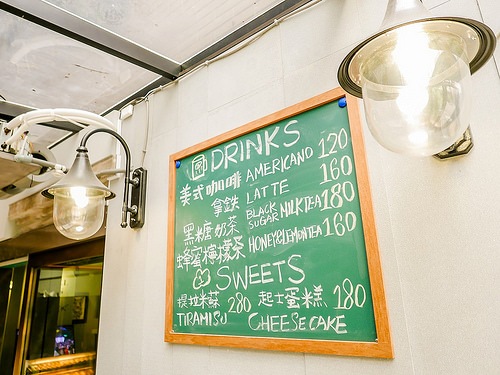 DRINKS
美式咖啡 AMERICANO 120
拿鉄 LATTE 160
黑糖奶茶 BLACK SUGAR MILKTEA 180
蜂蜜檸檬茶 HONEY&LEMONTEA 160
SWEETS
提拉米蘇 280 起士蛋糕 180
TIRAMISU CHEESECAKE